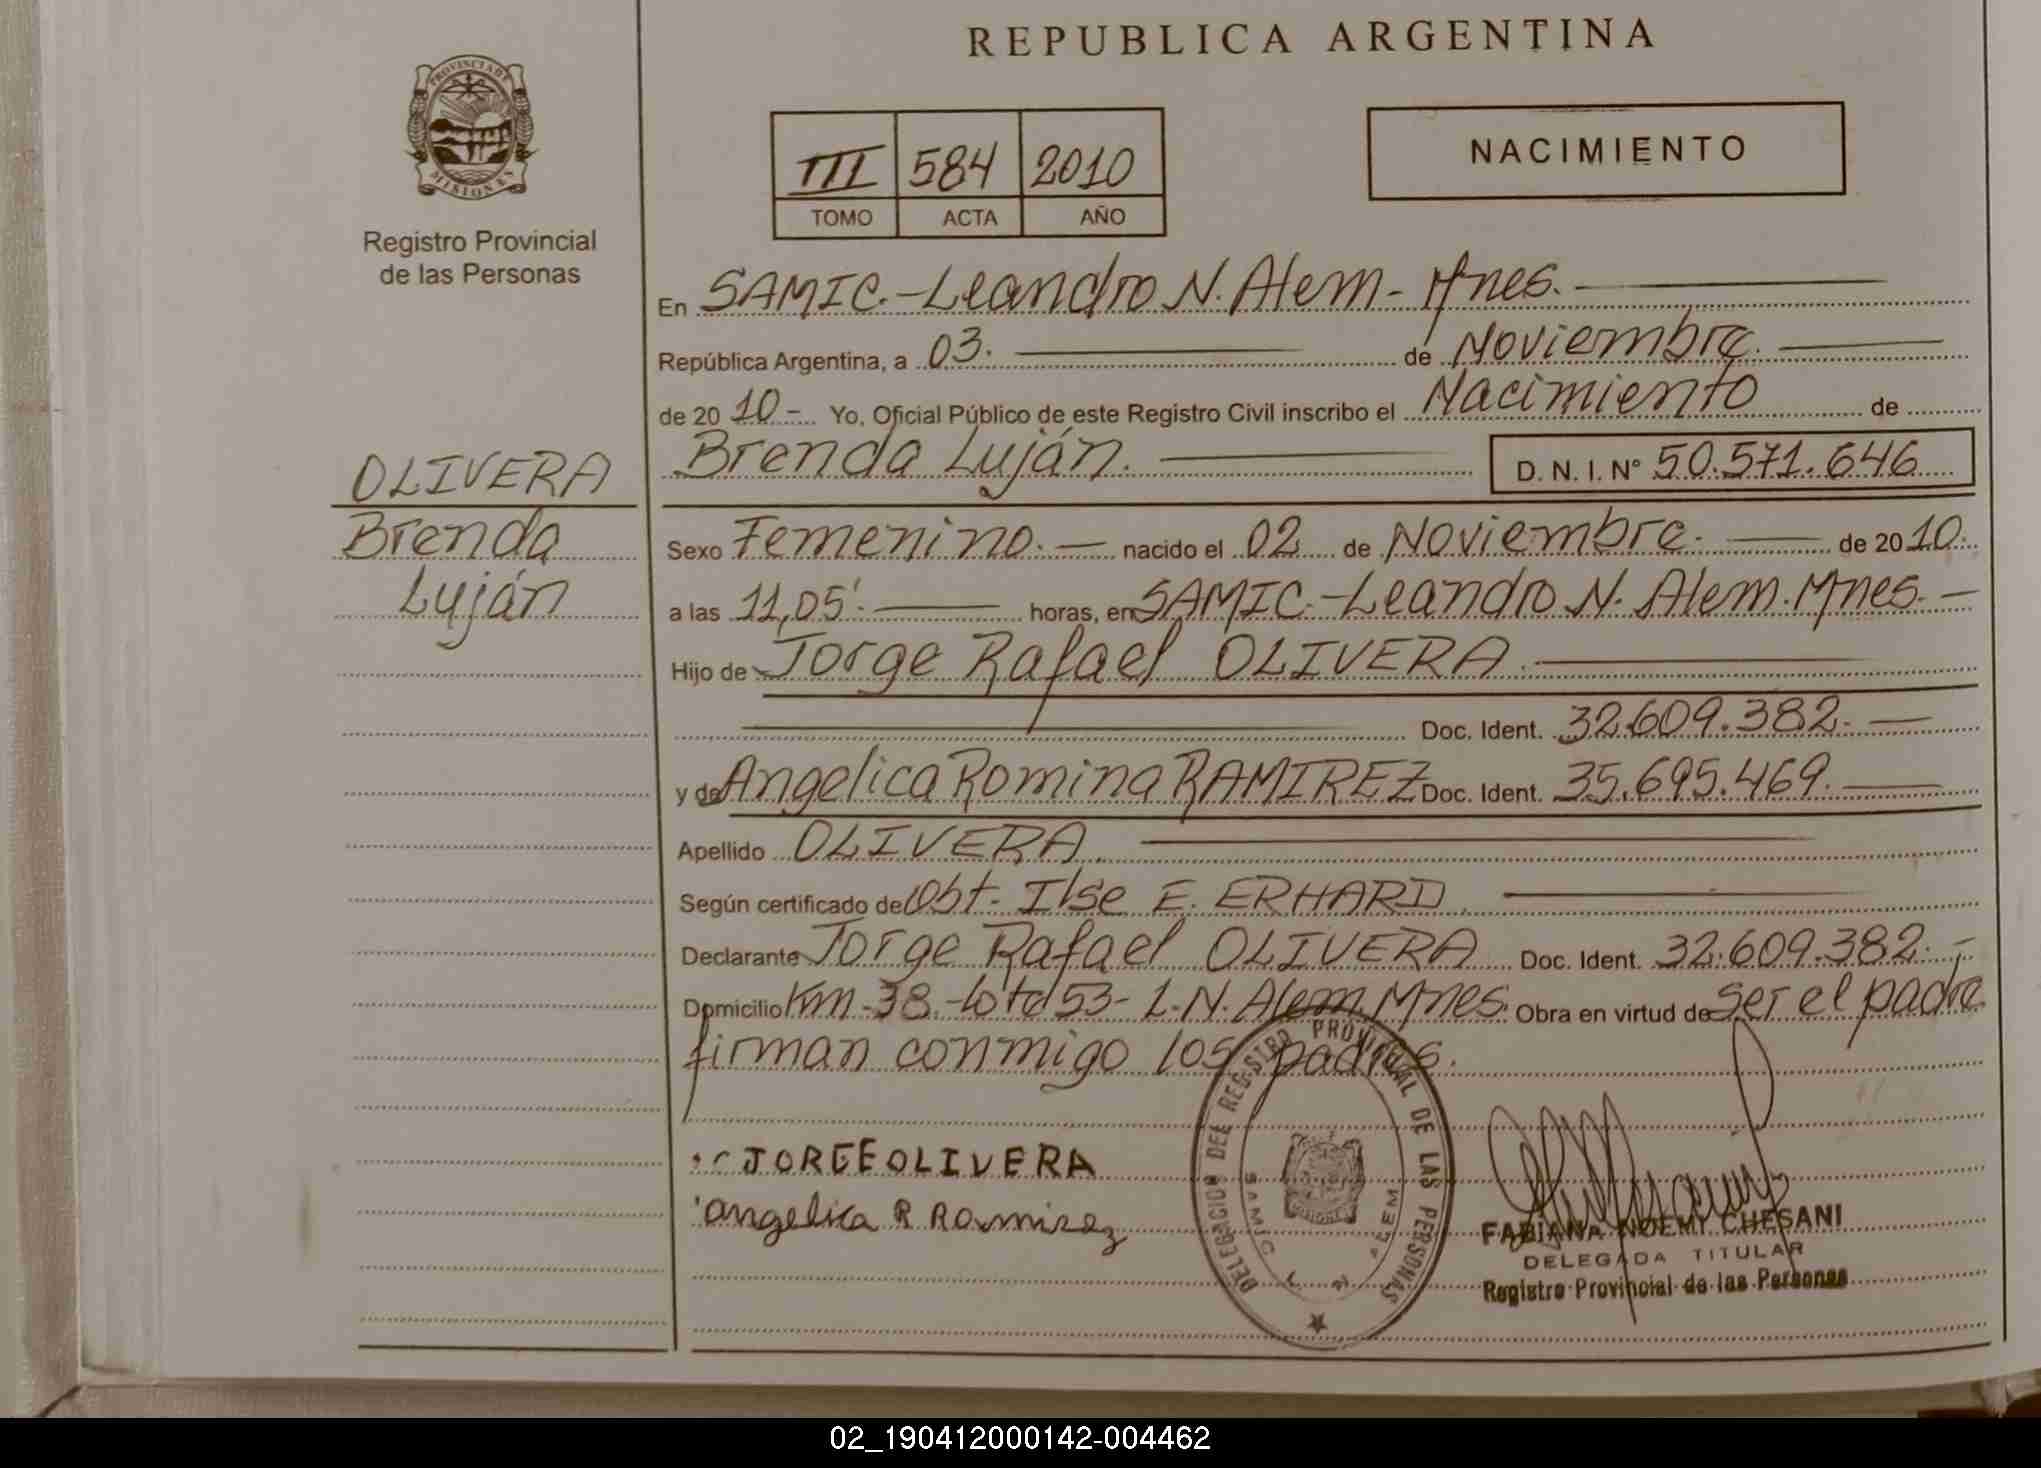 REPUBLICA ARGENTINA
PROVINCIA DE
MISIONES
Registro Provincial
de las Personas
III 584 2010
TOMO ACTA AÑO
NACIMIENTO
En SAMIC.-Leandro N. Alem- Mnes.
República Argentina, a 03. de Noviembre.
de 20 10.- Yo, Oficial Público de este Registro Civil inscribo el Nacimiento de
Brenda Luján. D. N. I. Nº 50.571.646
OLIVERA
Brenda
Luján
Sexo Femenino. nacido el 02 de Noviembre. de 20 10.
a las 11,05'. horas, en SAMIC.-Leandro N. Alem. Mnes.-
Hijo de Jorge Rafael OLIVERA.
Doc. Ident. 32.609.382.
y de Angelica Romina RAMIREZ Doc. Ident. 35.695.469.
Apellido OLIVERA.
Según certificado de Obt. Ilse E. ERHARD.
Declarante Jorge Rafael OLIVERA Doc. Ident. 32.609.382.-
Domicilio Km-38.-lote 53- L.N. Alem. Mnes. Obra en virtud de ser el padre
firman conmigo los padres.
JORGE OLIVERA
Angelica R Ramirez
DELEGACION DEL REGISTRO PROVINCIAL DE LAS PERSONAS
SAMIC L. N. ALEM
FABIANA NOEMY CHESANI
DELEGADA TITULAR
Registro Provincial de las Personas
02_190412000142-004462